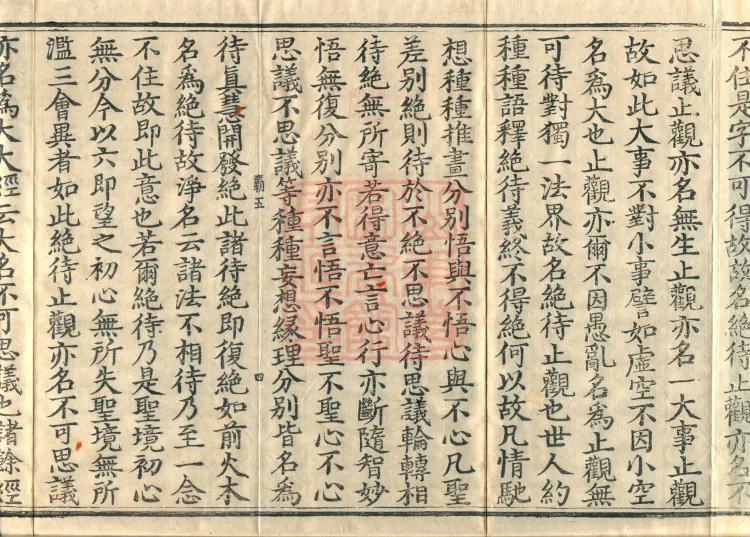 不住是字不可得故故名絶待止觀亦名不
思議止觀亦名無生止觀亦名一大事止觀
故如此大事不對小事譬如虛空不因小空
名為大也止觀亦爾不因愚亂名為止觀無
可待對獨一法界故名絶待止觀也世人約
種種語釋絶待義終不得絶何以故凡情馳
想種種推畫分別悟與不悟心與不心凡聖
差別絶則待於不絶不思議待思議輪轉相
待絶無所寄若得意亡言心行亦斷隨智妙
悟無復分別亦不言悟不悟聖不聖心不心
思議不思議等種種妄想緣理分別皆名為
霸五 四
待真慧開發絶此諸待絶即復絶如前火木
名為絶待故淨名云諸法不相待乃至一念
不住故即此意也若爾絶待乃是聖境初心
無分今以六即望之初心無所失聖境無所
濫三會異者如此絶待止觀亦名不可思議
亦名為大大經云大名不可思議也諸餘經